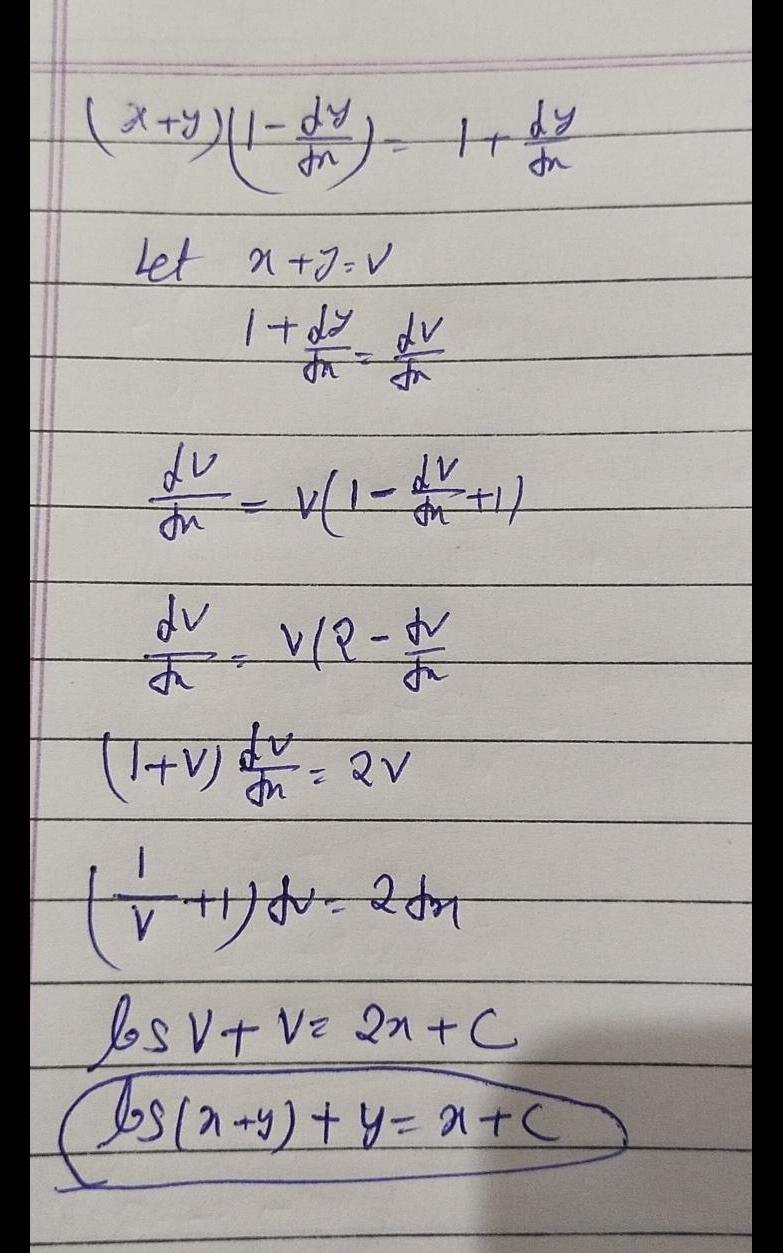 (x+y)(1-dy/dx) = 1+dy/dx
Let x+y=v
1+dy/dx = dv/dx
dv/dx = v(1-dv/dx+1)
dv/dx = v(2-dv/dx
(1+v)dv/dx = 2v
(1/v+1)dv = 2dx
log v+v = 2x+C
log(x+y)+y = x+C